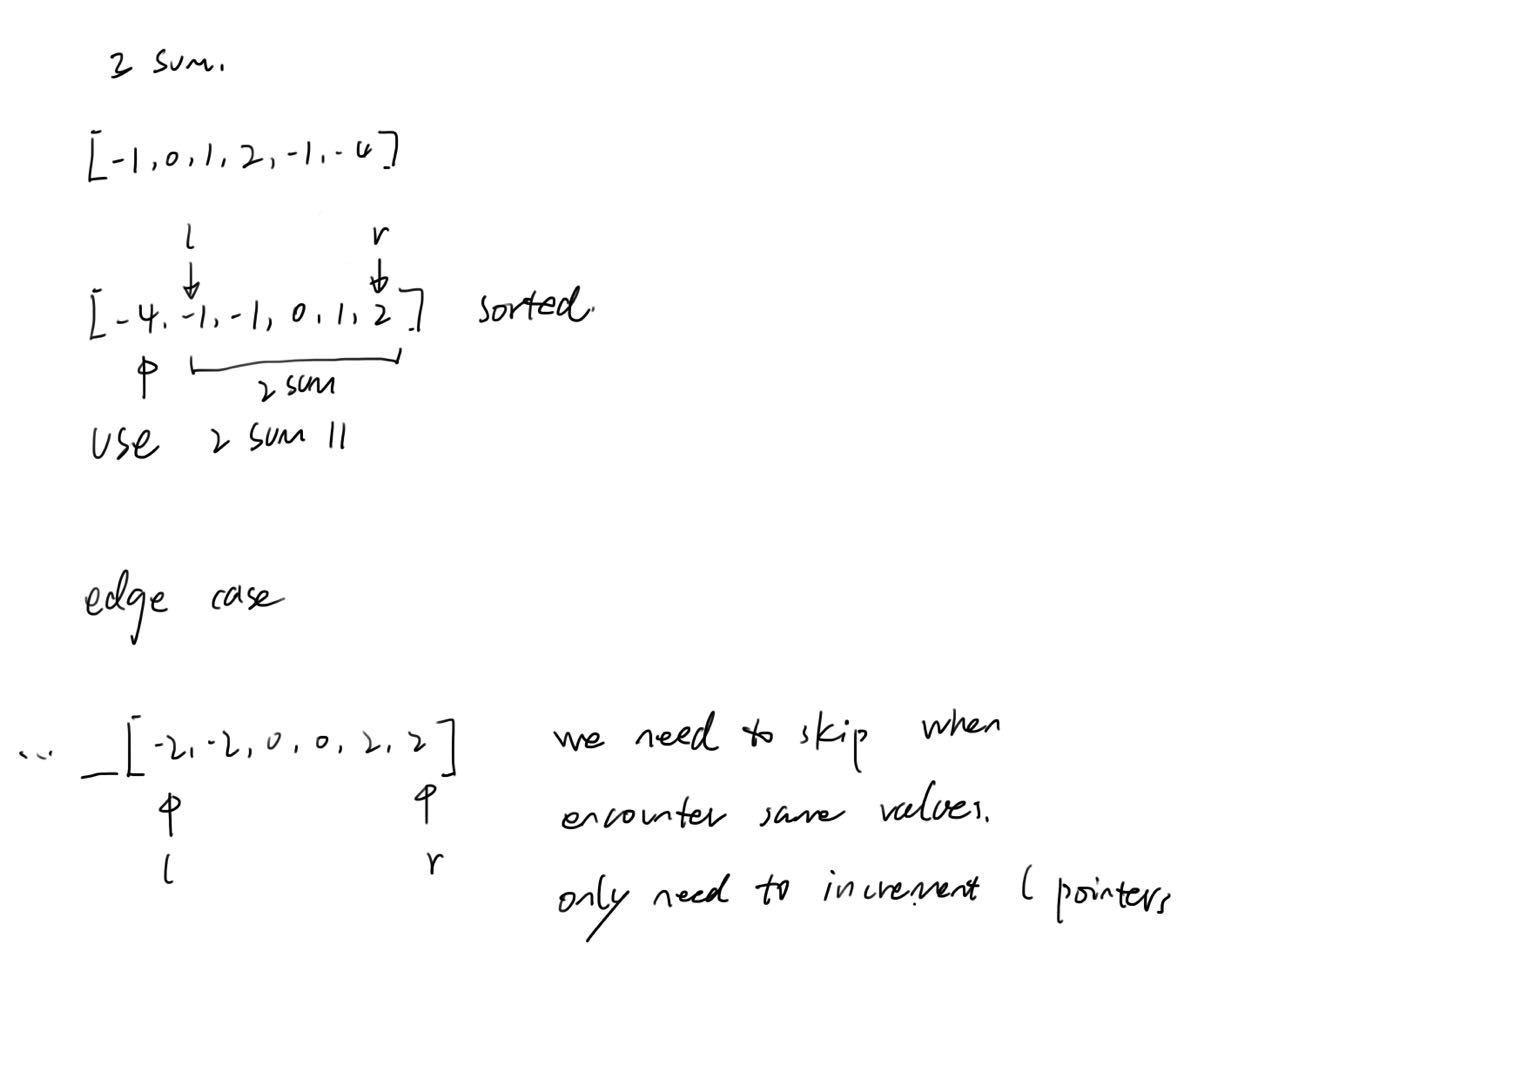 3 sum.
[-1, 0, 1, 2, -1, -4]
l r
[-4, -1, -1, 0, 1, 2] sorted.
2 sum
use 2 sum II
edge case
... _ [-2, -2, 0, 0, 2, 2] we need to skip when
encounter same values.
l r
only need to increment l pointers